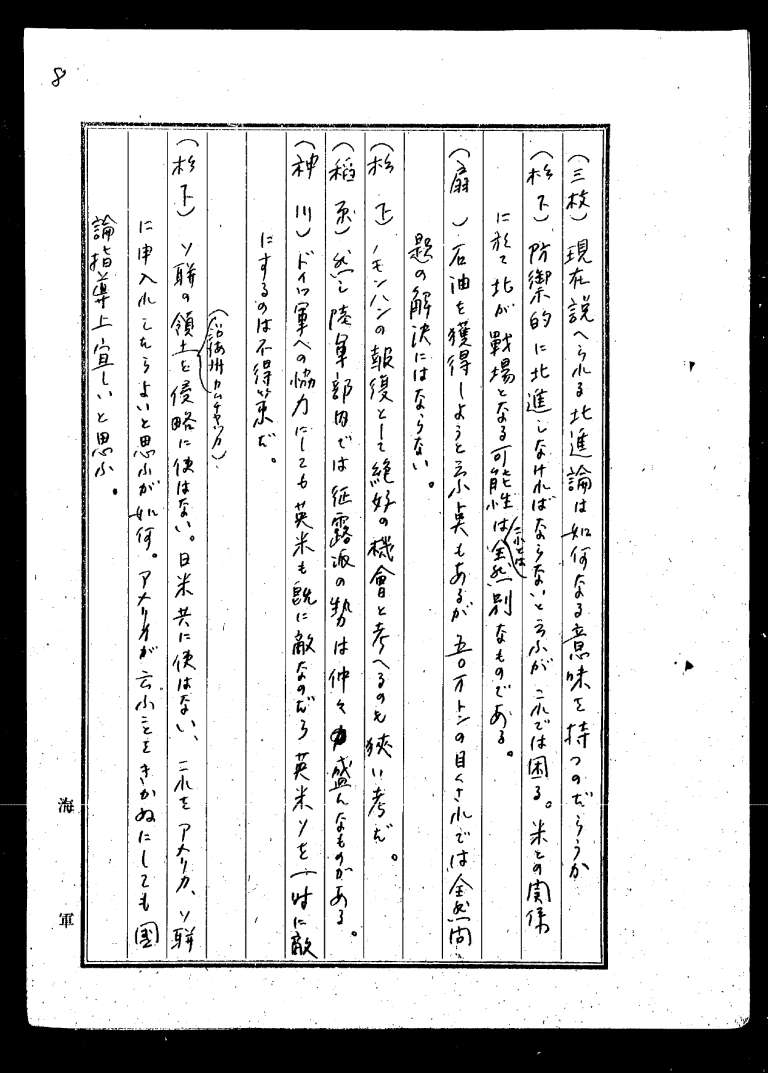 8
(三枝)現在説へられる北進論は如何なる意味を持つのだらうか
(杉下)防禦的に北進しなければならないと云ふが これでは困る。米との関係
に於て北が戦場となる可能性はこれとは全然別なものである。
(扇 )石油を獲得しようと云ふ点もあるが 五〇万トンの目くされでは全然问
題の解決にはならない。
(杉下)ノモンハンの報復として絶好の機會と考へるのも狭い考だ。
(稲原)然し陸軍部内では征露派の勢は仲々盛んなものがある。
(神川)ドイツ軍への協力にしても英米も既に敵なのだろ 英米ソを一时に敵
にするのは不得策だ。
(沿海州カムチャツカ)
(杉下)ソ聯の領土を侵略に使はない。日米共に使はない、これをアメリカ、ソ聯
に申入れしたらよいと思ふが如何。アメリカが云ふことをきかぬにしても 國
論指導上宜しいと思ふ。
海軍